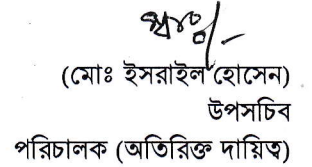 স্বাঃ/-
(মোঃ ইসরাইল হোসেন)
উপসচিব
পরিচালক (অতিরিক্ত দায়িত্ব)